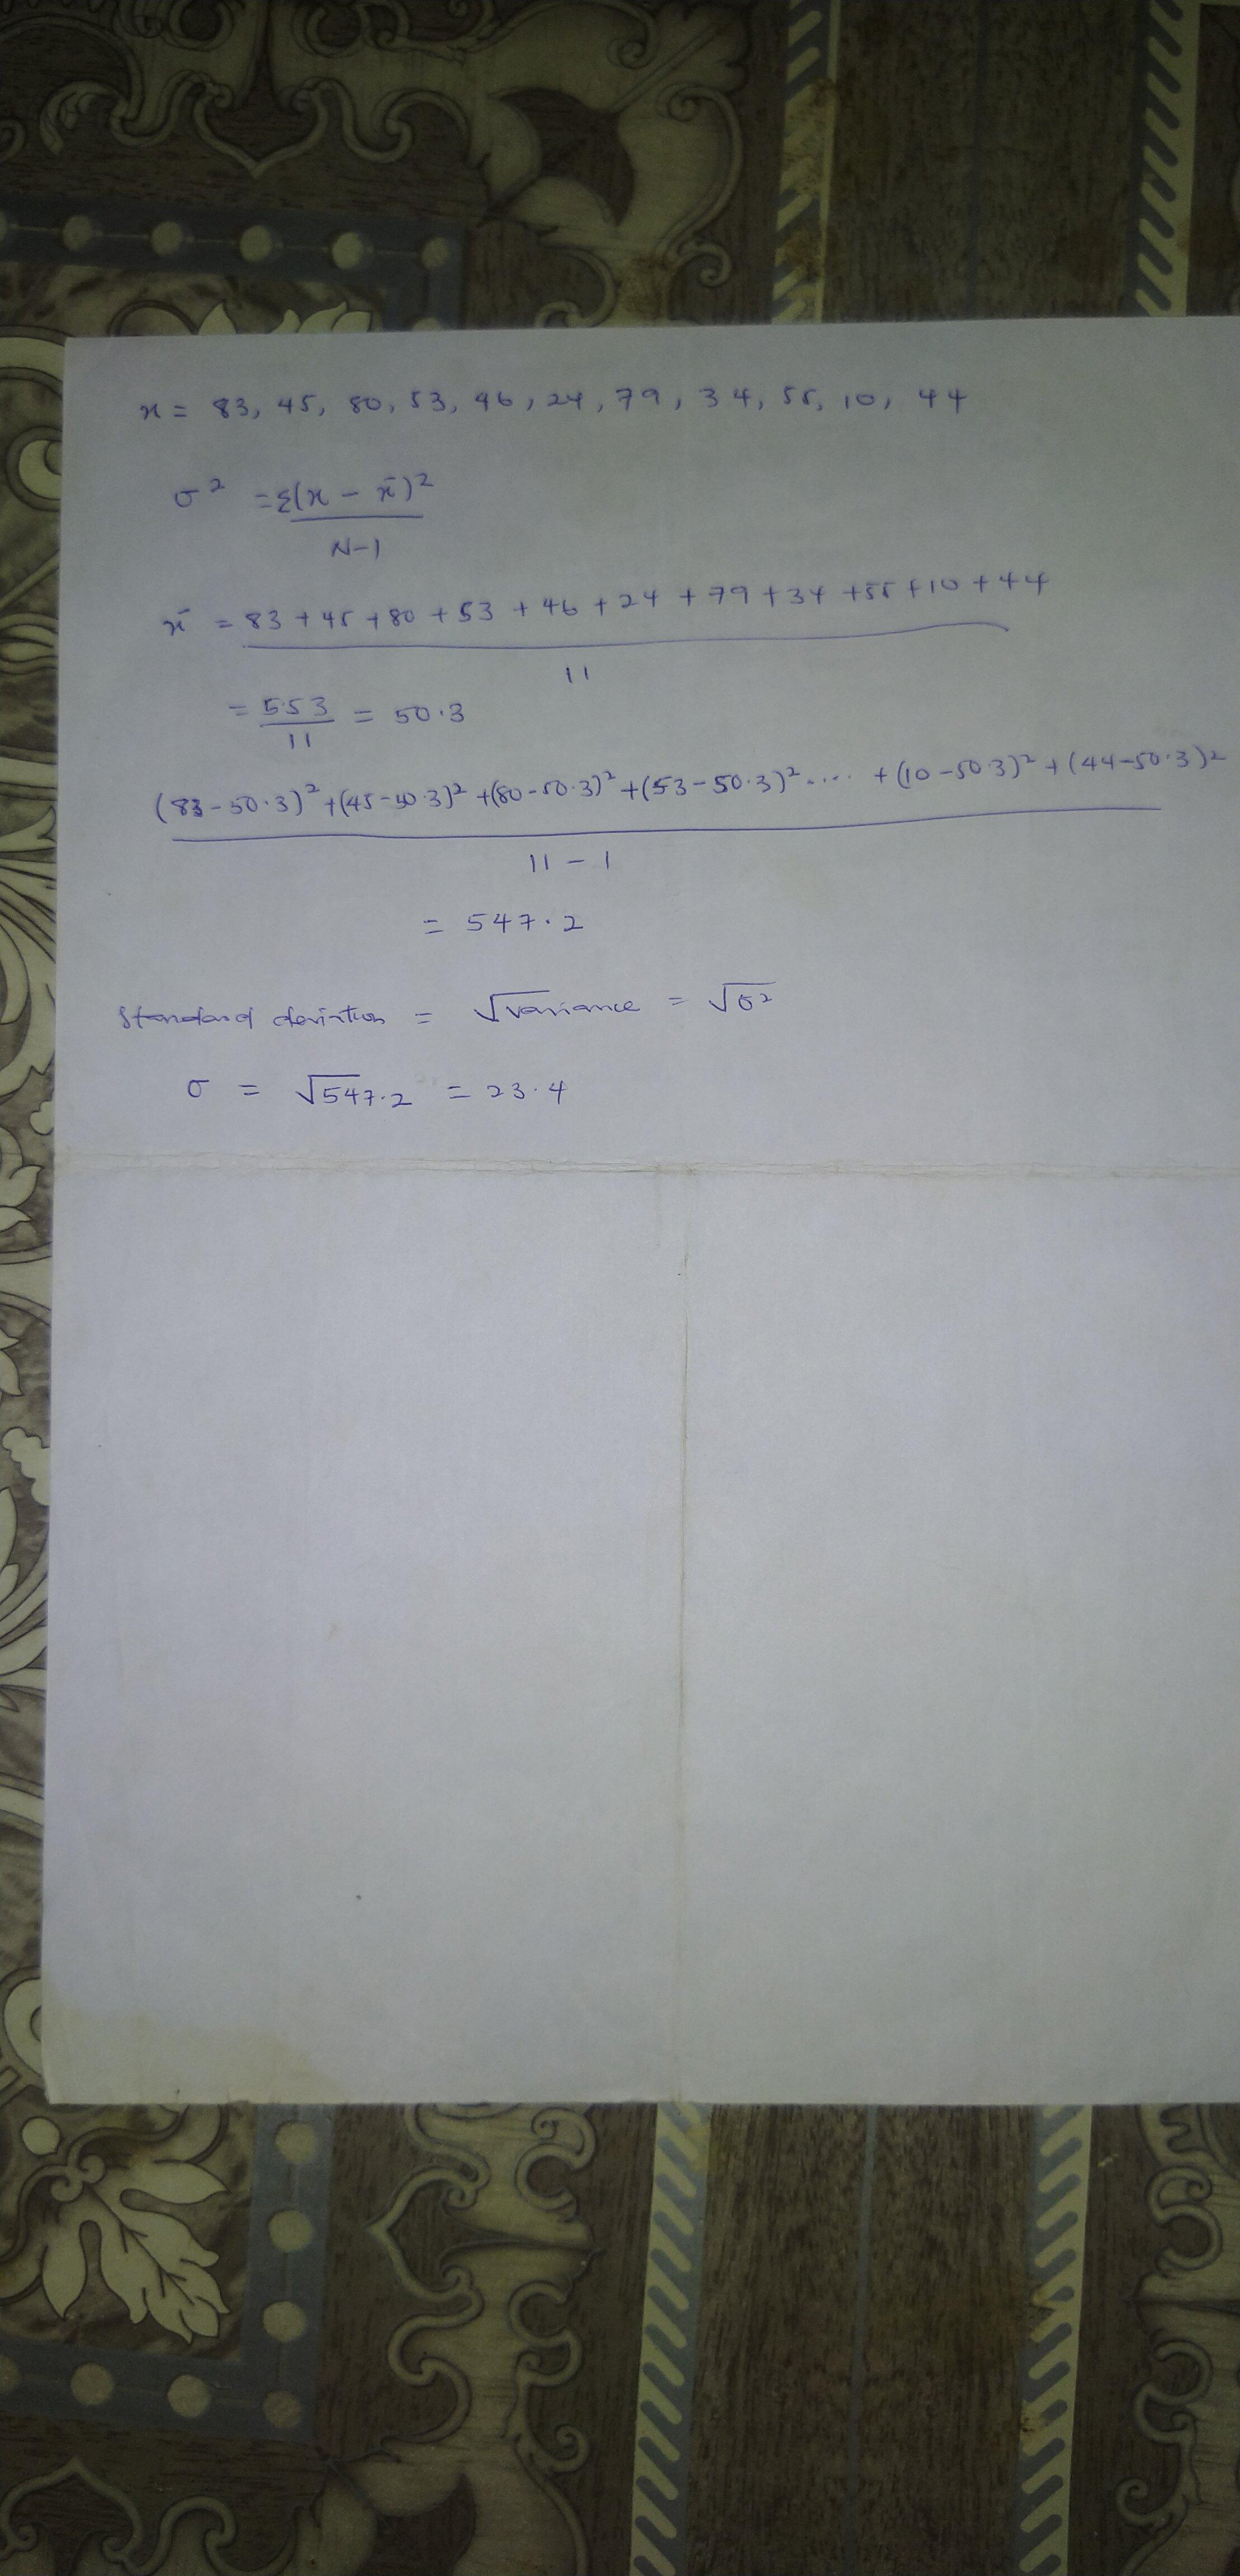 x = 83, 45, 80, 53, 46, 24, 79, 34, 55, 10, 44
σ² = Σ(x - x̄)²
N-1
x̄ = 83 + 45 + 80 + 53 + 46 + 24 + 79 + 34 + 55 + 10 + 44
11
= 553 = 50.3
11
(83-50.3)² + (45-50.3)² + (80-50.3)² + (53-50.3)² .... + (10-50.3)² + (44-50.3)²
11 - 1
= 547.2
Standard deviation = √variance = √σ²
σ = √547.2 = 23.4